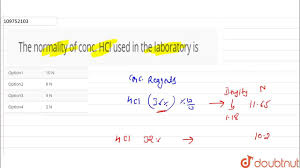 109752103
The normality of conc. HCl used in the laboratory is
Option1 10 N
Option2 8 N
Option3
Option4
Conc. Reagents
Density N
HCl (36%) 11.65
1.18
HCl 32% → 10.2
doubtnut